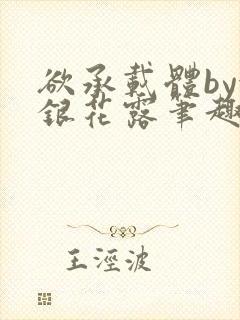 欲承載體by
銀花露筆趣
王淫波